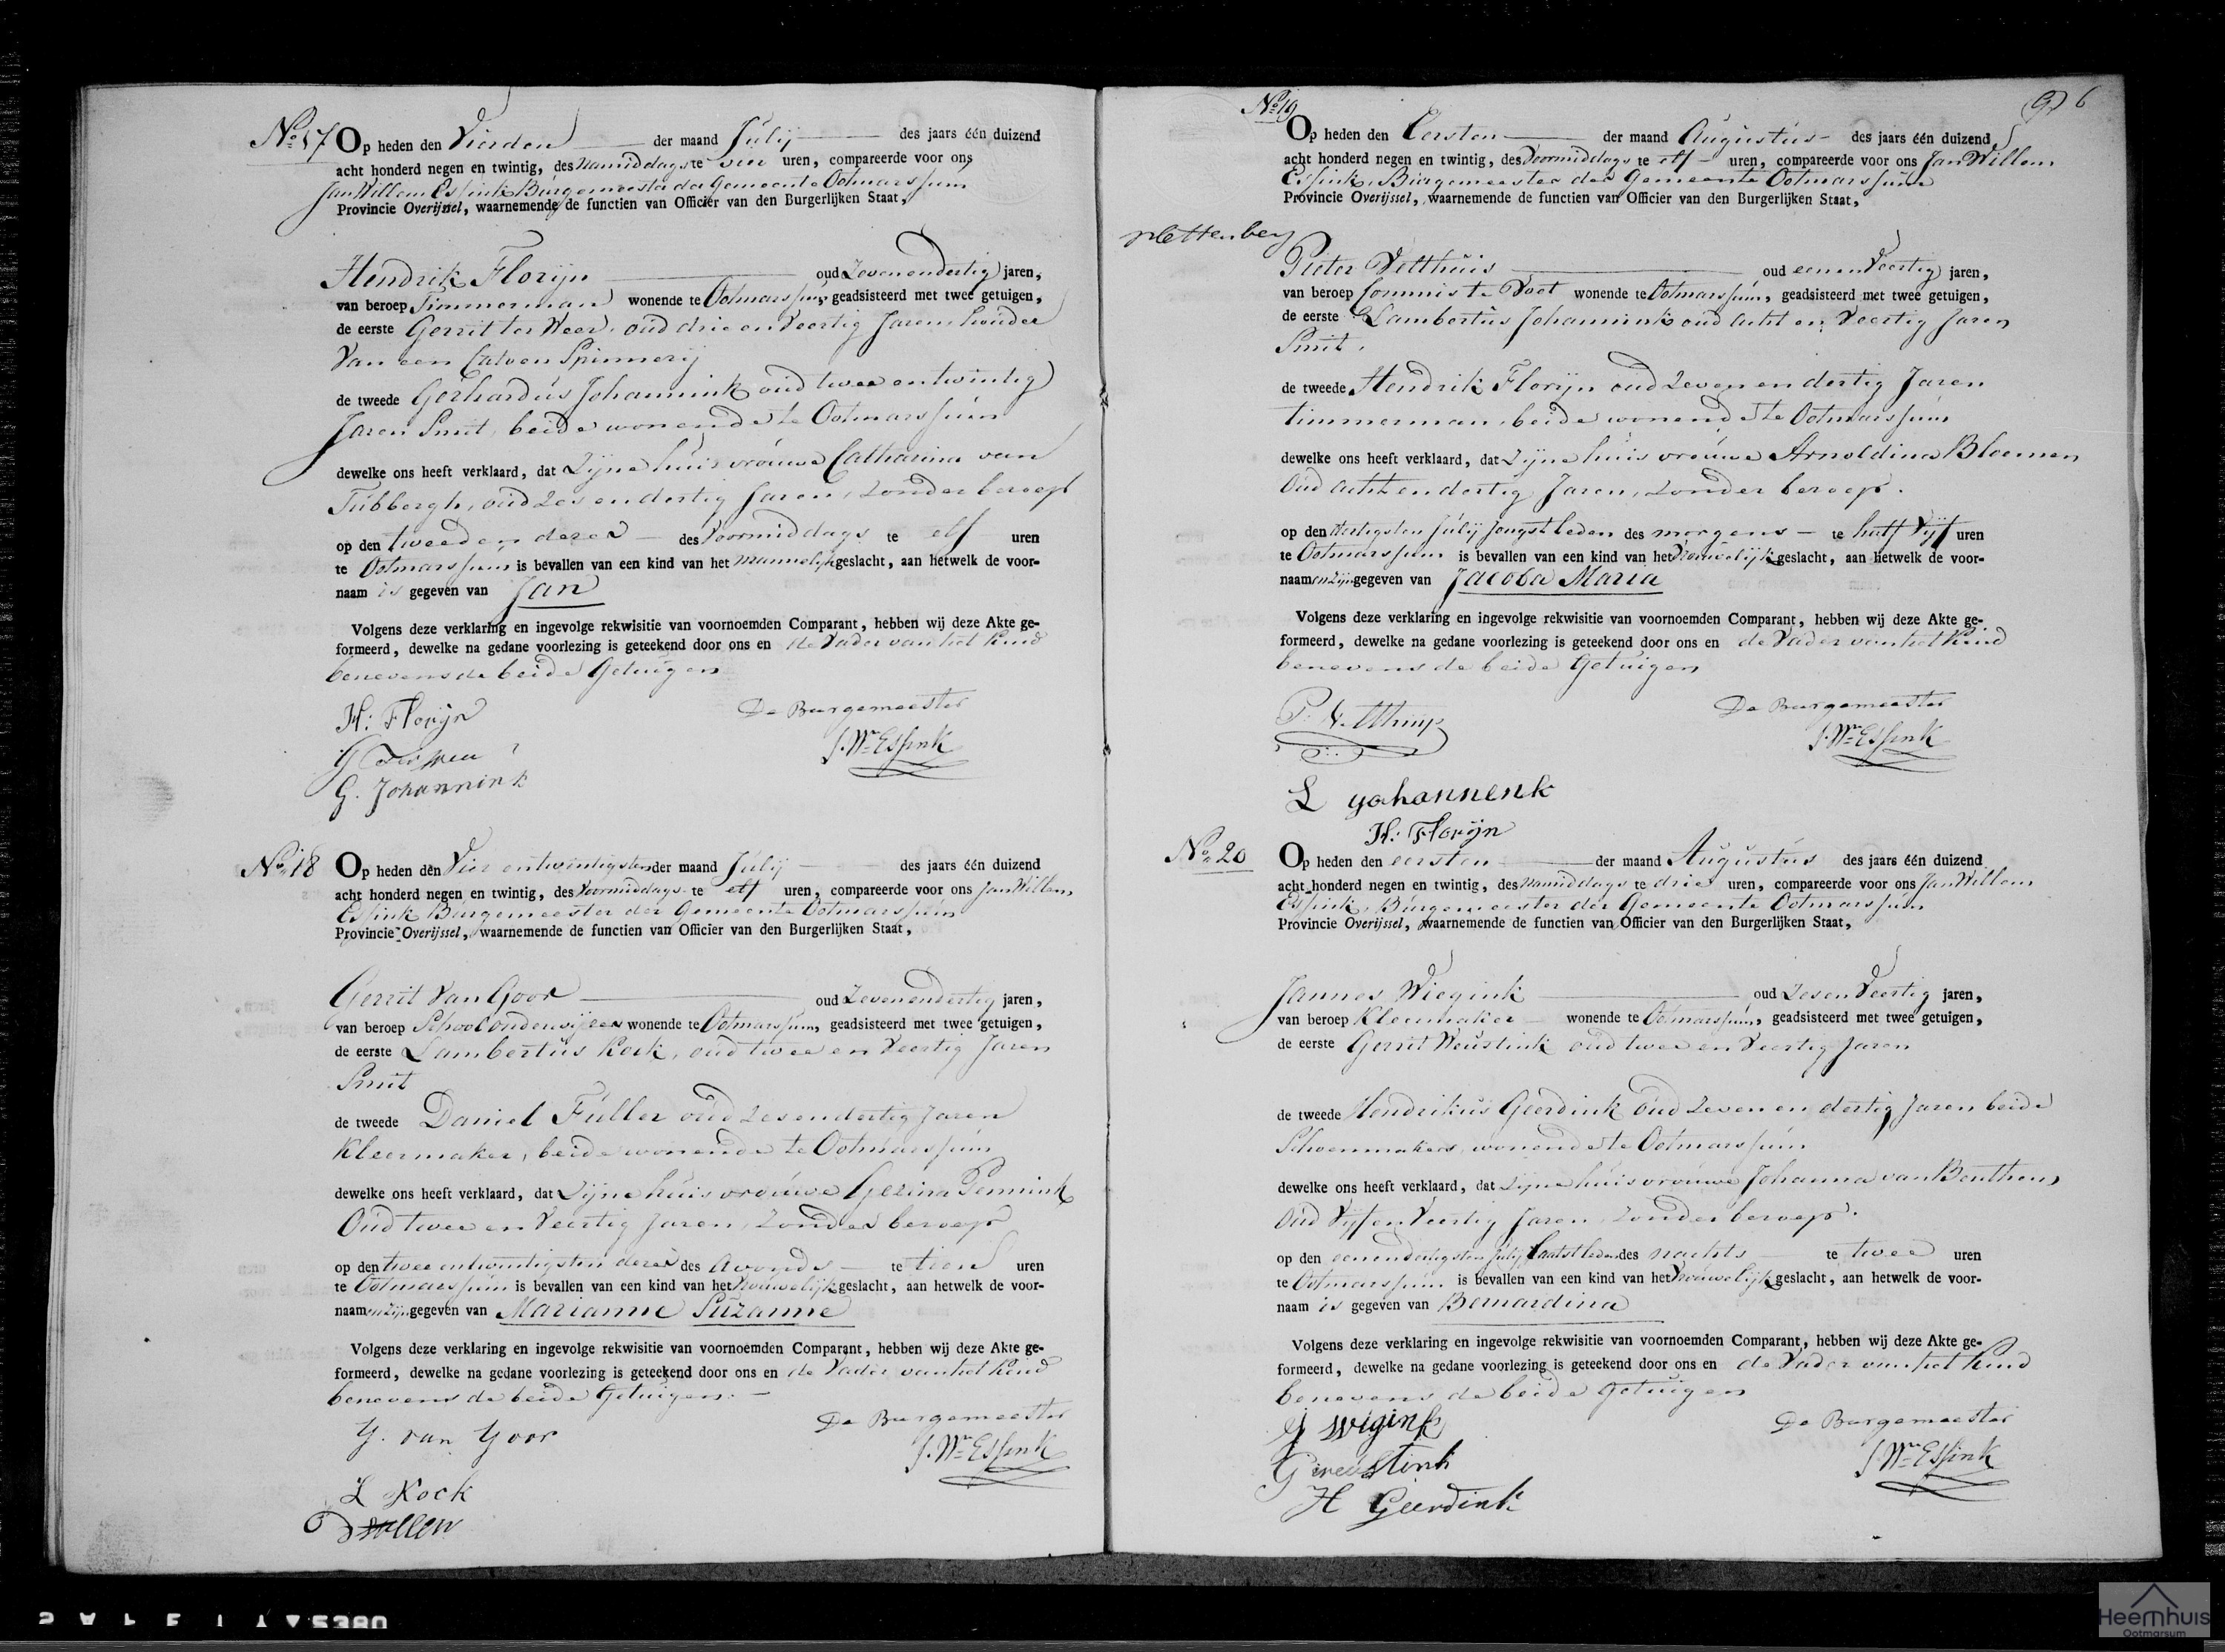 No. 17 Op heden den Vierden der maand Julij des jaars één duizend
acht honderd negen en twintig, des Namiddags te vier uren, compareerde voor ons
Jan Willem Essink Burgemeester der Gemeente Ootmarssum
Provincie Overijssel, waarnemende de functien van Officier van den Burgerlijken Staat,
Hendrik Florijn oud Zevenendertig jaren,
van beroep Timmerman wonende te Ootmarssum, geadsisteerd met twee getuigen,
de eerste Gerrit ter Weer, oud drie en Veertig Jaren, houder
Van een Catoen Spinnerij
de tweede Gerhardus Johannink oud twee en twintig
Jaren Smit, beide wonende te Ootmarssum
dewelke ons heeft verklaard, dat Zijne huisvrouwe Catharina van
Tubbergh, oud Zes en dertig Jaren, Zonder beroep
op den tweeden dezer des Voormiddags te elf uren
te Ootmarssum is bevallen van een kind van het Mannelijk geslacht, aan hetwelk de voor-
naam is gegeven van Jan
Volgens deze verklaring en ingevolge rekwisitie van voornoemden Comparant, hebben wij deze Akte ge-
formeerd, dewelke na gedane voorlezing is geteekend door ons en de Vader van het Kind
benevens de beide Getuigen
H: Florijn De Burgemeester
J. Wm Essink
G. Johannink
No. 18 Op heden den Vier en twintigsten der maand Julij des jaars één duizend
acht honderd negen en twintig, des Voormiddags te elf uren, compareerde voor ons Jan Willem
Essink Burgemeester der Gemeente Ootmarssum
Provincie Overijssel, waarnemende de functien van Officier van den Burgerlijken Staat,
Gerrit Van Goor oud Zevenendertig jaren,
van beroep Schoolonderwijzer wonende te Ootmarssum, geadsisteerd met twee getuigen,
de eerste Lambertus Kock, oud twee en Veertig Jaren
Smit
de tweede Daniel Fuller oud Zes en dertig Jaren
Kleermaker, beide wonende te Ootmarssum
dewelke ons heeft verklaard, dat Zijne huisvrouwe Gezina Pennink
Oud twee en Veertig Jaren, Zonder beroep
op den twee en twintigsten dezer des Avonds te tien uren
te Ootmarssum is bevallen van een kind van het Vrouwelijk geslacht, aan hetwelk de voor-
naamen zijn gegeven van Marianne Suzanne
Volgens deze verklaring en ingevolge rekwisitie van voornoemden Comparant, hebben wij deze Akte ge-
formeerd, dewelke na gedane voorlezing is geteekend door ons en de Vader van het Kind
benevens de beide Getuigen.
G. van Goor De Burgemeester
J. Wm Essink
L Kock
No. 19 6
Op heden den Eersten der maand Augustus des jaars één duizend
acht honderd negen en twintig, des Voormiddags te elf uren, compareerde voor ons Jan Willem
Essink, Burgemeester der Gemeente Ootmarssum
Provincie Overijssel, waarnemende de functien van Officier van den Burgerlijken Staat,
plettenberg
Pieter Velthuis oud eenen Veertig jaren,
van beroep Commis te Voet wonende te Ootmarssum, geadsisteerd met twee getuigen,
de eerste Lambertus Johannink oud acht en Veertig Jaren
Smit.
de tweede Hendrik Florijn oud Zeven en dertig Jaren
timmerman, beide wonende te Ootmarssum
dewelke ons heeft verklaard, dat Zijne huisvrouwe Arnoldina Bloemen
Oud acht en dertig Jaren, Zonder beroep.
op den dertigsten Julij Jongstleden des morgens te half Vijf uren
te Ootmarssum is bevallen van een kind van het Vrouwelijk geslacht, aan hetwelk de voor-
naamen zijn gegeven van Jacoba Maria
Volgens deze verklaring en ingevolge rekwisitie van voornoemden Comparant, hebben wij deze Akte ge-
formeerd, dewelke na gedane voorlezing is geteekend door ons en de Vader van het Kind
benevens de beide Getuigen
P: Velthuijs De Burgemeester
J. Wm Essink
L yohannenk
H: Florijn
No. 20 Op heden den eersten der maand Augustus des jaars één duizend
acht honderd negen en twintig, des Namiddags te drie uren, compareerde voor ons Jan Willem
Essink, Burgemeester der Gemeente Ootmarssum
Provincie Overijssel, waarnemende de functien van Officier van den Burgerlijken Staat,
Jannes Wiegink oud Zes en Veertig jaren,
van beroep Kleermaker wonende te Ootmarssum, geadsisteerd met twee getuigen,
de eerste Gerrit Weustink oud twee en Veertig Jaren
de tweede Hendrikus Geerdink Oud Zeven en dertig Jaren beide
Schoenmakers, wonende te Ootmarssum
dewelke ons heeft verklaard, dat Zijne huisvrouwe Johanna van Benthem
Oud Vijf en Veertig Jaren, Zonder beroep.
op den eenendertigsten Julij laatstleden des nachts te twee uren
te Ootmarssum is bevallen van een kind van het Vrouwelijk geslacht, aan hetwelk de voor-
naam is gegeven van Bernardina
Volgens deze verklaring en ingevolge rekwisitie van voornoemden Comparant, hebben wij deze Akte ge-
formeerd, dewelke na gedane voorlezing is geteekend door ons en de Vader van het Kind
benevens de beide Getuigen
J Wigink De Burgemeester
G weustink J. Wm Essink
H Geerdink
5380
Heemhuis
Ootmarsum